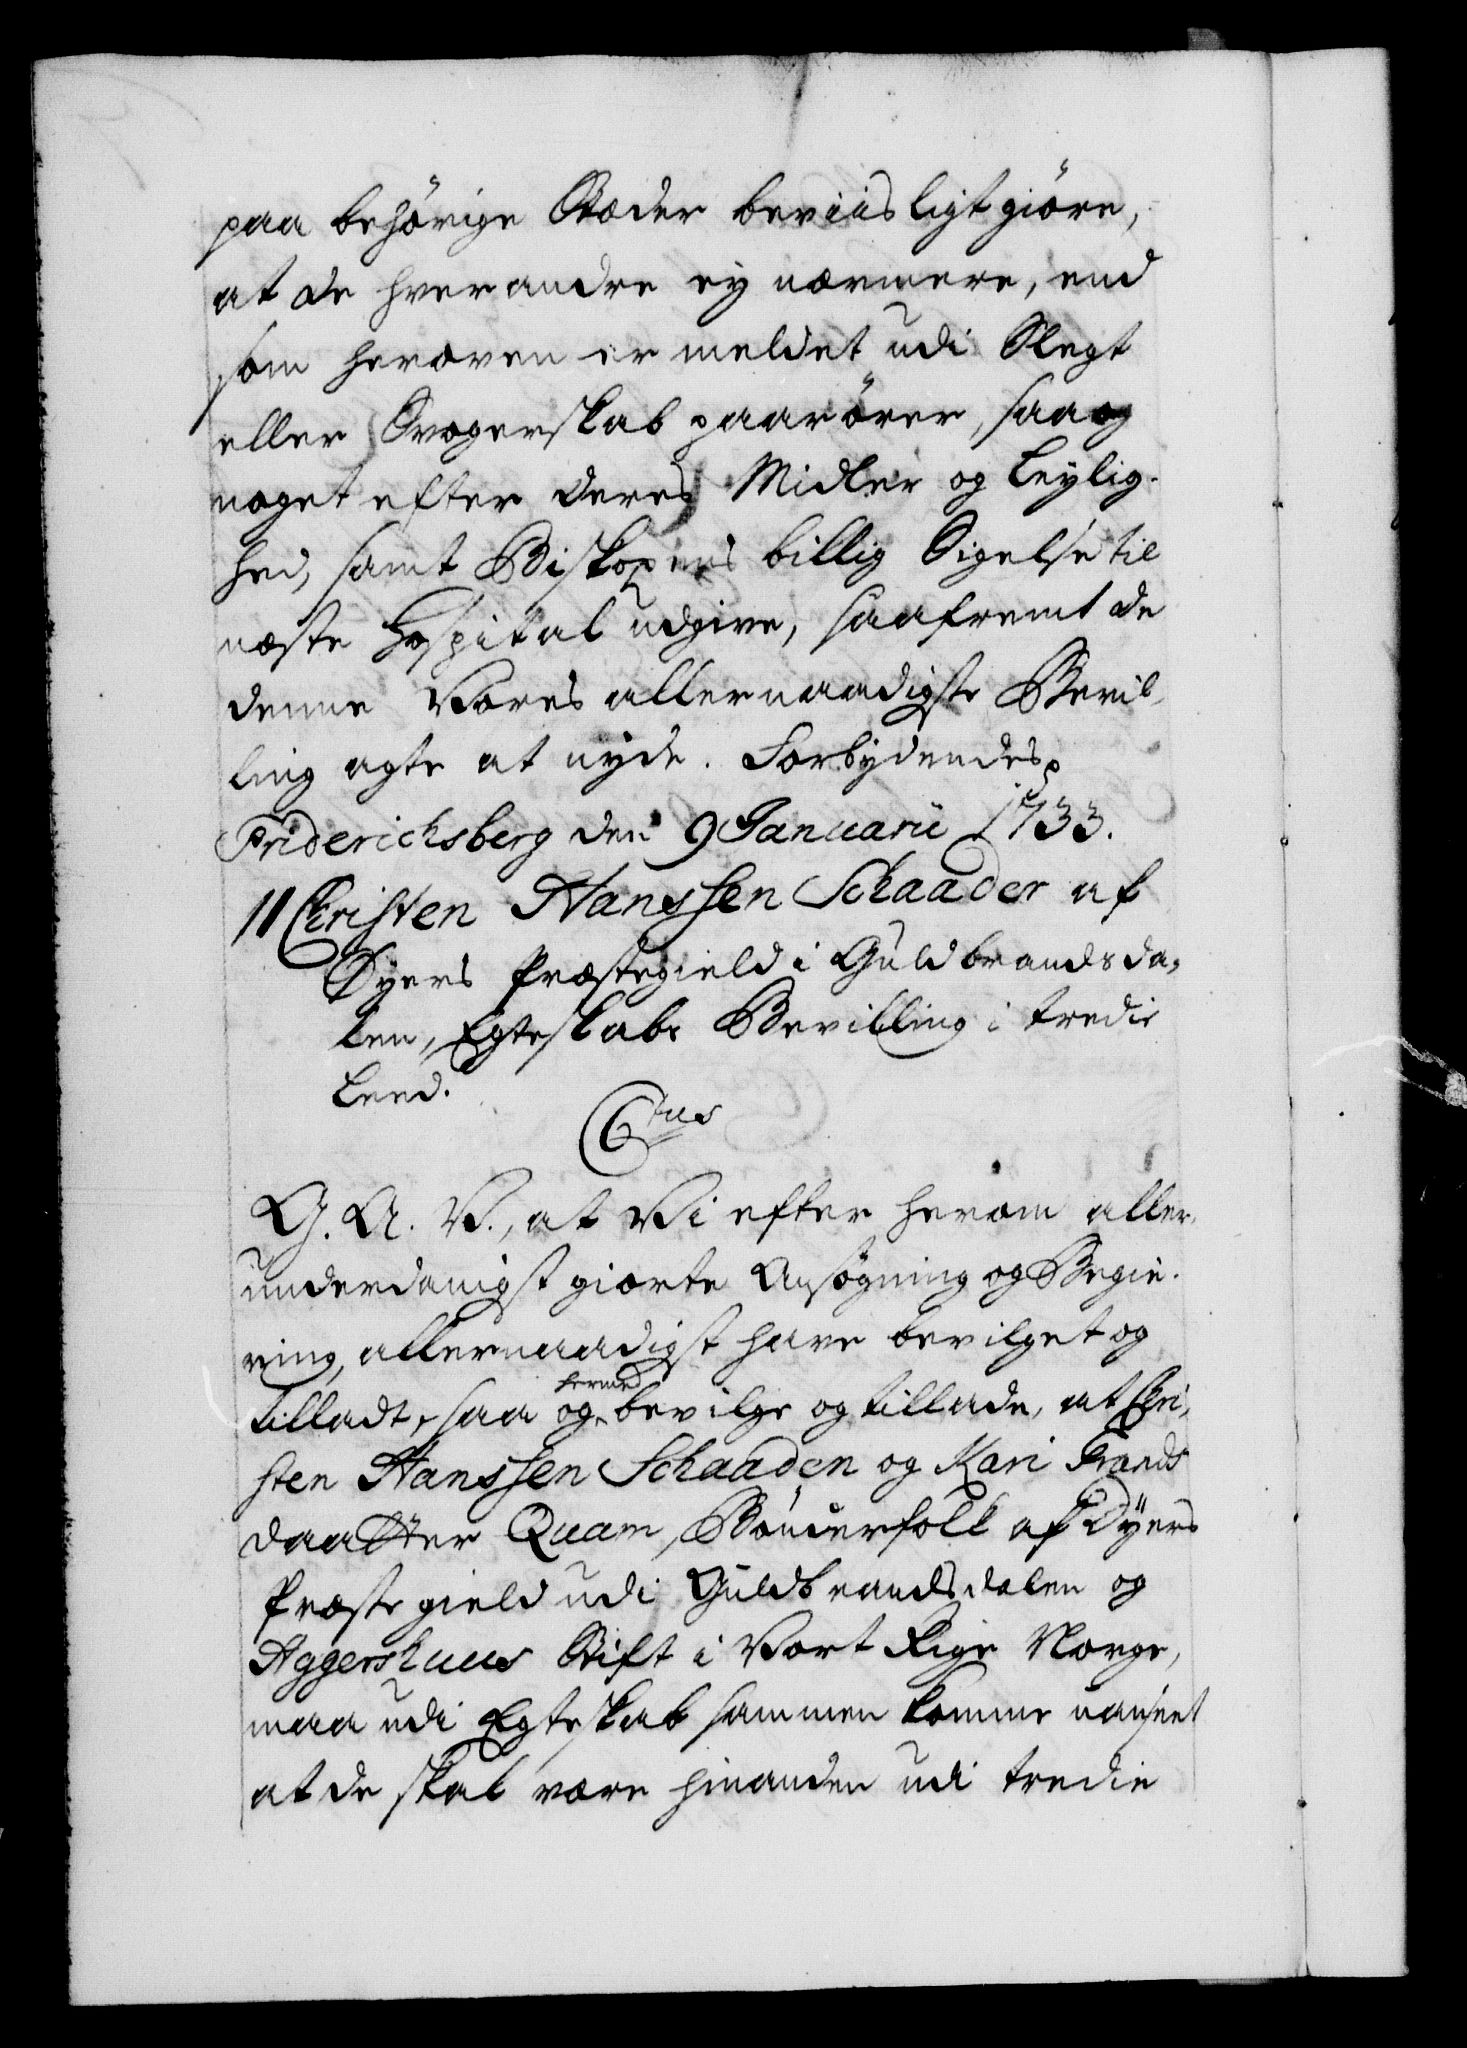 paa behörige Stæder beviisligt giöre,
at de hverandre ey nærmere, end
som heroven er meldet udi Slegt
eller Svogerskab paarörer, saa og
noget efter deres Midler og Leylig-
hed, samt Biskopens billig Sigelse til
næste Hospital udgive, saafremt de
denne Vores allernaadigste Bevil-
ling agte at nyde. Forbydendes p
Friderichsberg den 9 Januarii 1733.
11 Christen Hanssen Schaader af
Dyers Præstegield i Guldbrandsda-
len, Egteskabs Bevilling i tredie
Leed.
C6tus
G. A. V., at Vi efter herom aller-
underdanigst giorte Ansögning og Begie-
ring, allernaadigst have bevilget og
tilladt, saa og hermed bevilge og tillade, at Chri-
sten Hanssen Schaaden og Kari Frands
daatter Quam, Bönderfolk af Dÿers
Præstegield udi Guldbrandsdalen og
Aggershuus Stift i Vort Rige Norge,
maa udi Egteskab sammen komme uanseet
at de skal være hinanden udi tredie